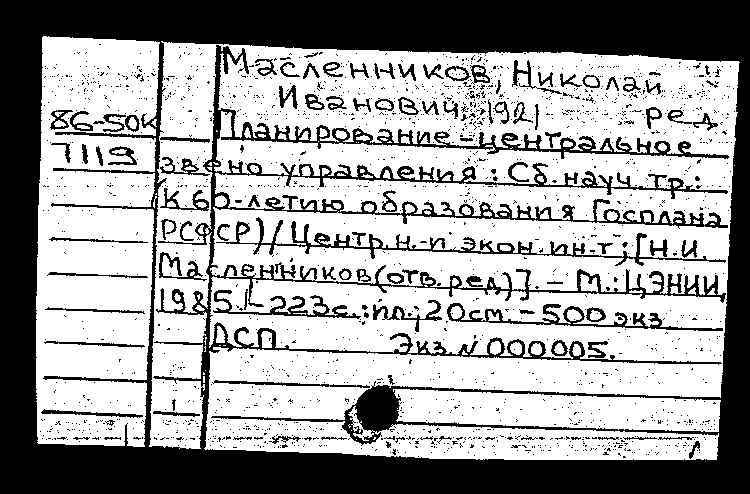 Масленников, Николай
Иванович, 1921 ред
86-50к Планирование-центральное
7119 звено управления: Сб. науч. тр.:
(К 60-летию образования Госплана
РСФСР)/Центр. н.-и экон. ин-т; [Н.И.
Масленников (отв. ред)]. - М.: ЦЭНИИ,
1985.-223с.: ил.; 20см. - 500 экз
ДСП. Экз. № 000005.